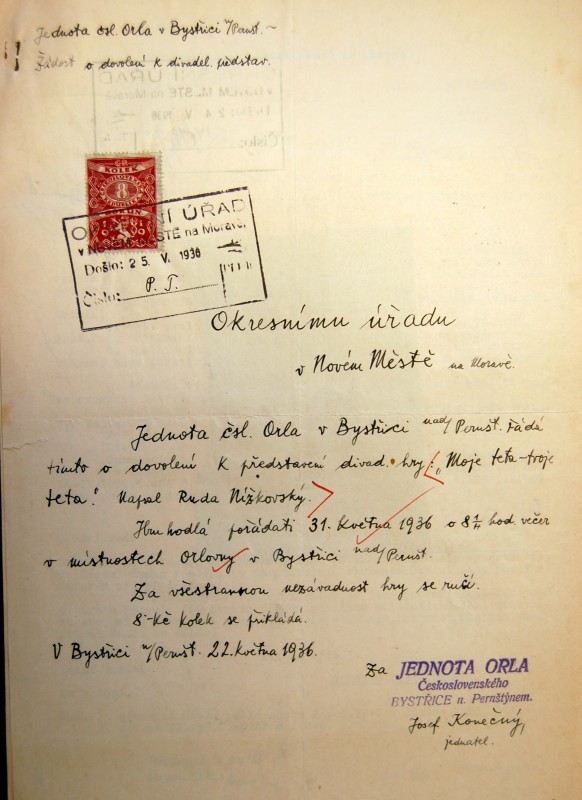 Jednota čsl. Orla v Bystřici n/Pernšt. —
Žádost o dovolení k divadel. představ.
KOLEK
8
OKRESNÍ ÚŘAD
v NOVÉM MĚSTĚ na Moravě.
Došlo: 25. V. 1936
Číslo: P. T.
Okresnímu úřadu
v Novém Městě na Moravě.
Jednota čsl. Orla v Bystřici nad/Pernšt. žádá
tímto o dovolení k představení divad. hry: „Moje teta-troje
teta." Napsal Ruda Nížkovský.
Hru hodlá pořádati 31. května 1936 o 8¼ hod. večer
v místnostech Orlovny v Bystřici nad/Pernšt.
Za všestrannou nezávadnost hry se ručí.
8-Kč kolek se přikládá.
V Bystřici n/Pernšt. 22. května 1936.
Za JEDNOTA ORLA
Československého
BYSTŘICE n. Pernštýnem.
Josef Konečný,
jednatel.